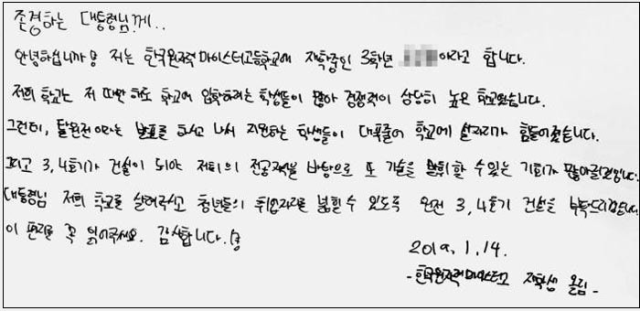 존경하는 대통령님께..
안녕하십니까? 저는 한국원자력마이스터고등학교에 재학중인 3학년 이라고 합니다.
저희 학교는 저 때만 해도 학교에 입학하려는 학생들이 많아 경쟁력이 상당히 높은 학교였습니다.
그런데, 탈원전 이라는 발표를 하고 나서 지원하는 학생들이 대폭줄어 학교에 살리기가 힘들어졌습니다.
그리고 3,4호기가 건설이 되어야 저희의 전공지식을 바탕으로 또 기술을 발휘할 수 있는 기회가 많아질것입니다.
대통령님 저희 학교를 살려주시고 청년들의 취업자리를 넓힐 수 있도록 원전 3,4호기 건설을 부탁드리겠습니다.
이 편지를 꼭 읽어주세요. 감사합니다.
2019. 1. 14.
-한국원자력마이스터고 재학생 올림-